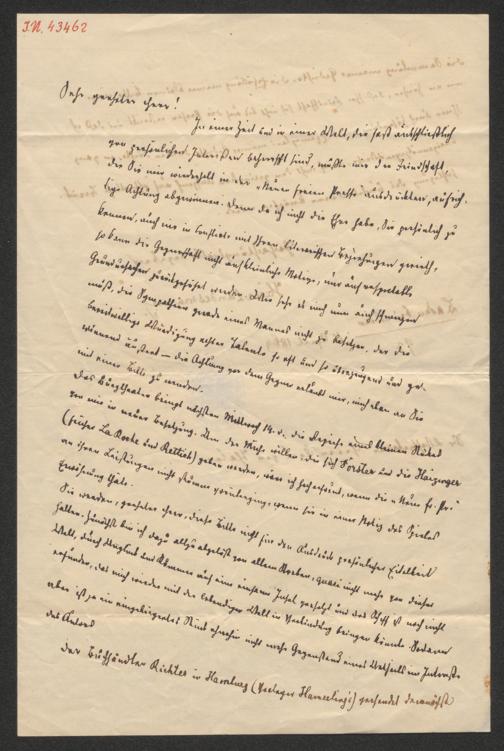 J.N. 43462
Sehr geehrter Herr!
In einer Zeit und in einer Welt, die fast ausschließlich
von persönlichen Interessen beherrscht sind, mußte mir die Feindschaft,
die Sie mir wiederholt in der „Neuen freien Presse" ausdrückten, aufrich-
tige Achtung abgewinnen. Denn da ich nicht die Ehre habe, Sie persönlich zu
kennen, auch nie in Conflicte mit Ihren literarischen Beziehungen gerieth,
so kann die Gegnerschaft nicht auf kleinliche Motive, nur auf respectable
Grundursachen zurückgeführt werden. Wie sehr es mich nun auch schmerzen
muß, die Sympathien gerade eines Mannes nicht zu besitzen, der die
bereitwillige Würdigung echter Talente so oft und so überzeugend und ge-
winnend äußert — die Achtung vor dem Gegner erlaubt mir, mich eben an Sie
mit einer Bitte zu wenden.
Das Burgtheater bringt nächsten Mittwoch 14. d. die Reprise eines kleinen Stückes
von mir in neuer Besetzung. Um der Mühe willen, die sich Förster und die Haizinger
(früher La Roche und Rettich) geben werden, wäre ich hocherfreut, wenn die „Neue fr. Pr."
an ihren Leistungen nicht stumm vorüberginge, wenn sie in einer Notiz des Spieles
Erwähnung thäte.
Sie werden, geehrter Herr, diese Bitte nicht für den Ausdruck persönlicher Eitelkeit
halten. Zunächst bin ich dazu allzu abgelöst von allem Streben, quasi nicht mehr von dieser
Welt, durch Unglück und Kummer auf eine einsame Insel gesetzt und das Schiff ist noch nicht
erfunden, das mich wieder mit der lebendigen Welt in Verbindung bringen könnte. Sodann
aber ist ja ein eingebürgertes Stück ohnehin nicht mehr Gegenstand eines Urtheils im Interesse
des Autors
Der Buchhändler Richter in Hamburg (Verleger Hamerling's) versendet demnächst